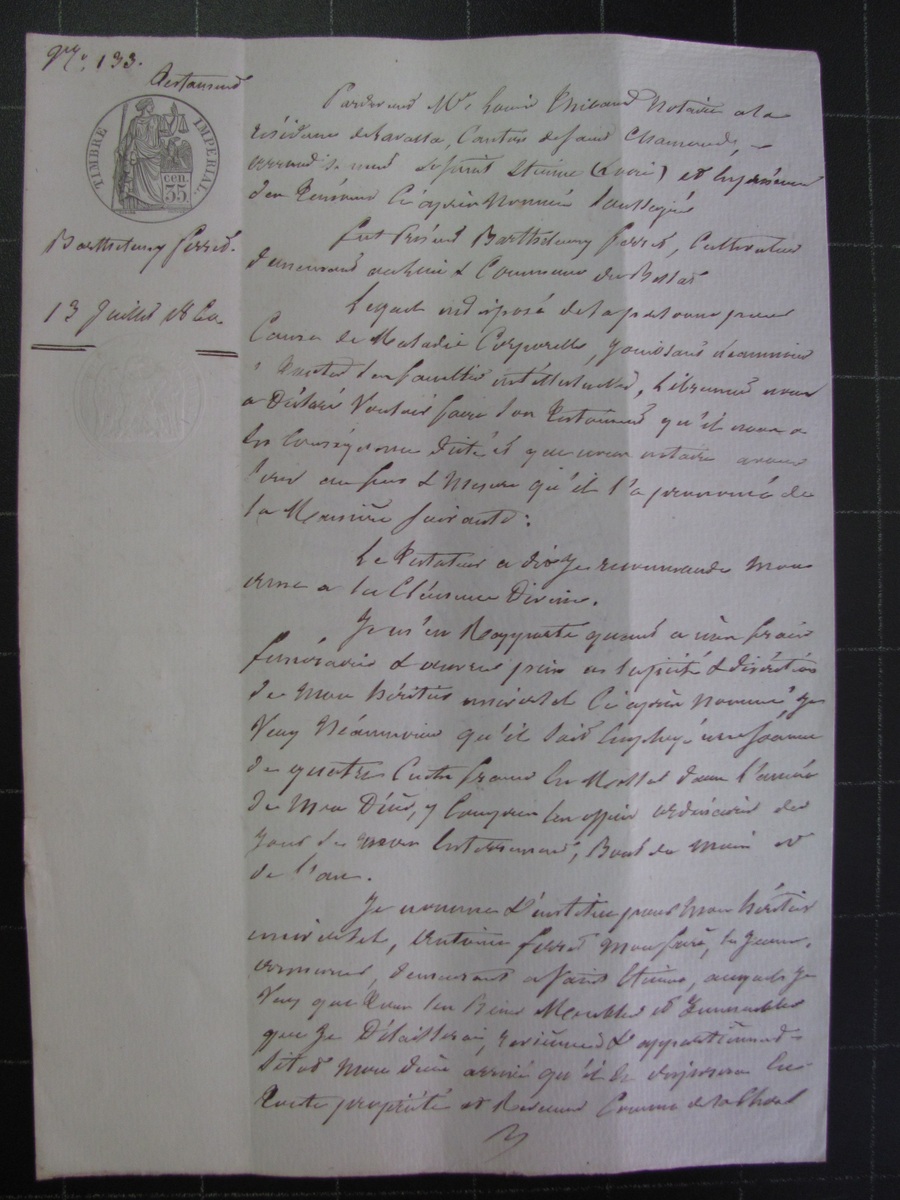 N.° 133.
Testament
TIMBRE IMPERIAL.
35 cen.
Barthelemy Ferret.
13 Juillet 1860.
Pardevant Me. Louis Thibaud Notaire a la
résidence de Lavalla, Canton de Saint Chamond,
arrondissement de Saint Etienne (Loire) et en présence
des témoins Ci après Nommés Soussignés
fut Présent Barthelemy Ferret, Cultivateur
demeurant Commune du Bessat
Lequel indisposé de sa personne pour
Cause de Maladie Corporelle, jouissant néanmoins
de toutes ses facultés intellectuelles, librement nous
a Déclaré Vouloir faire Son Testament qu'il nous a
dicté et que nous notaire avons
écrit au fur & Mesure qu'il l'a prononcé de
la Manière Suivante:
Le Testateur a dit Je recommande Mon
ame a la Clémence Divine.
Je m'en Rapporte quant a mes frais
funéraires & œuvres pies a la piété & discrétion
de Mon héritier universel Ci après nommé, Je
Veux Néanmoins qu'il Soit Employé une Somme
de quatre Cents francs En Messes dans l'année
de Mon Décès, y Compris les offices ordinaires des
jours de mon Enterrement, Bout de Mois et
de l'an.
Je nomme & institue pour Mon héritier
universel, Antoine Ferret Mon frère, le Jeune,
armurier, demeurant a Saint Etienne, auquel Je
Veux que tous les Biens Meubles et Immeubles
que Je Délaisserai, reviennent & appartiennent
Sitot Mon décès arrivé qu'il en disposera En
toute propriété et Revenus Comme de Sa Chose